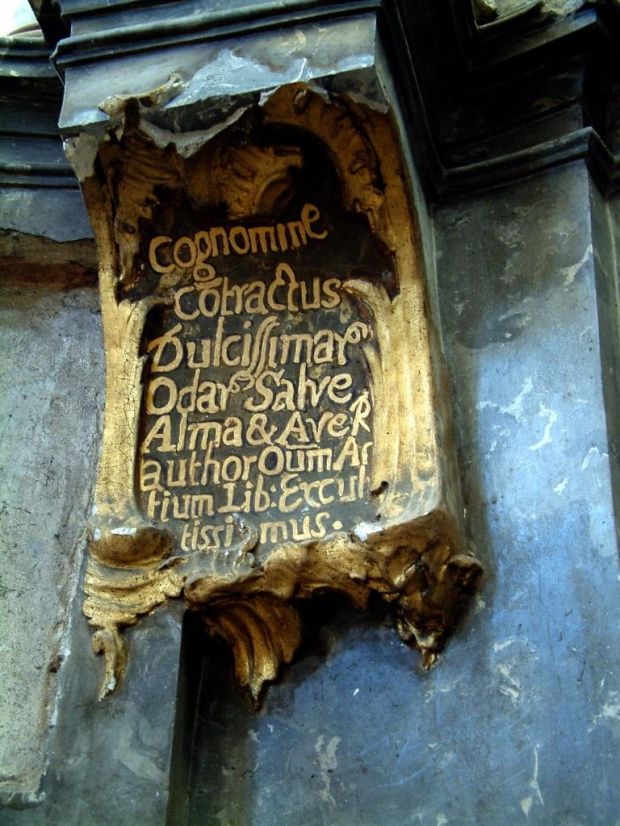 Cognomine
cotractus
Dulcissimarꝝ
Odarꝝ Salve
Alma & Ave R
author Oum Ar
tium Lib: Excul
tissimus.